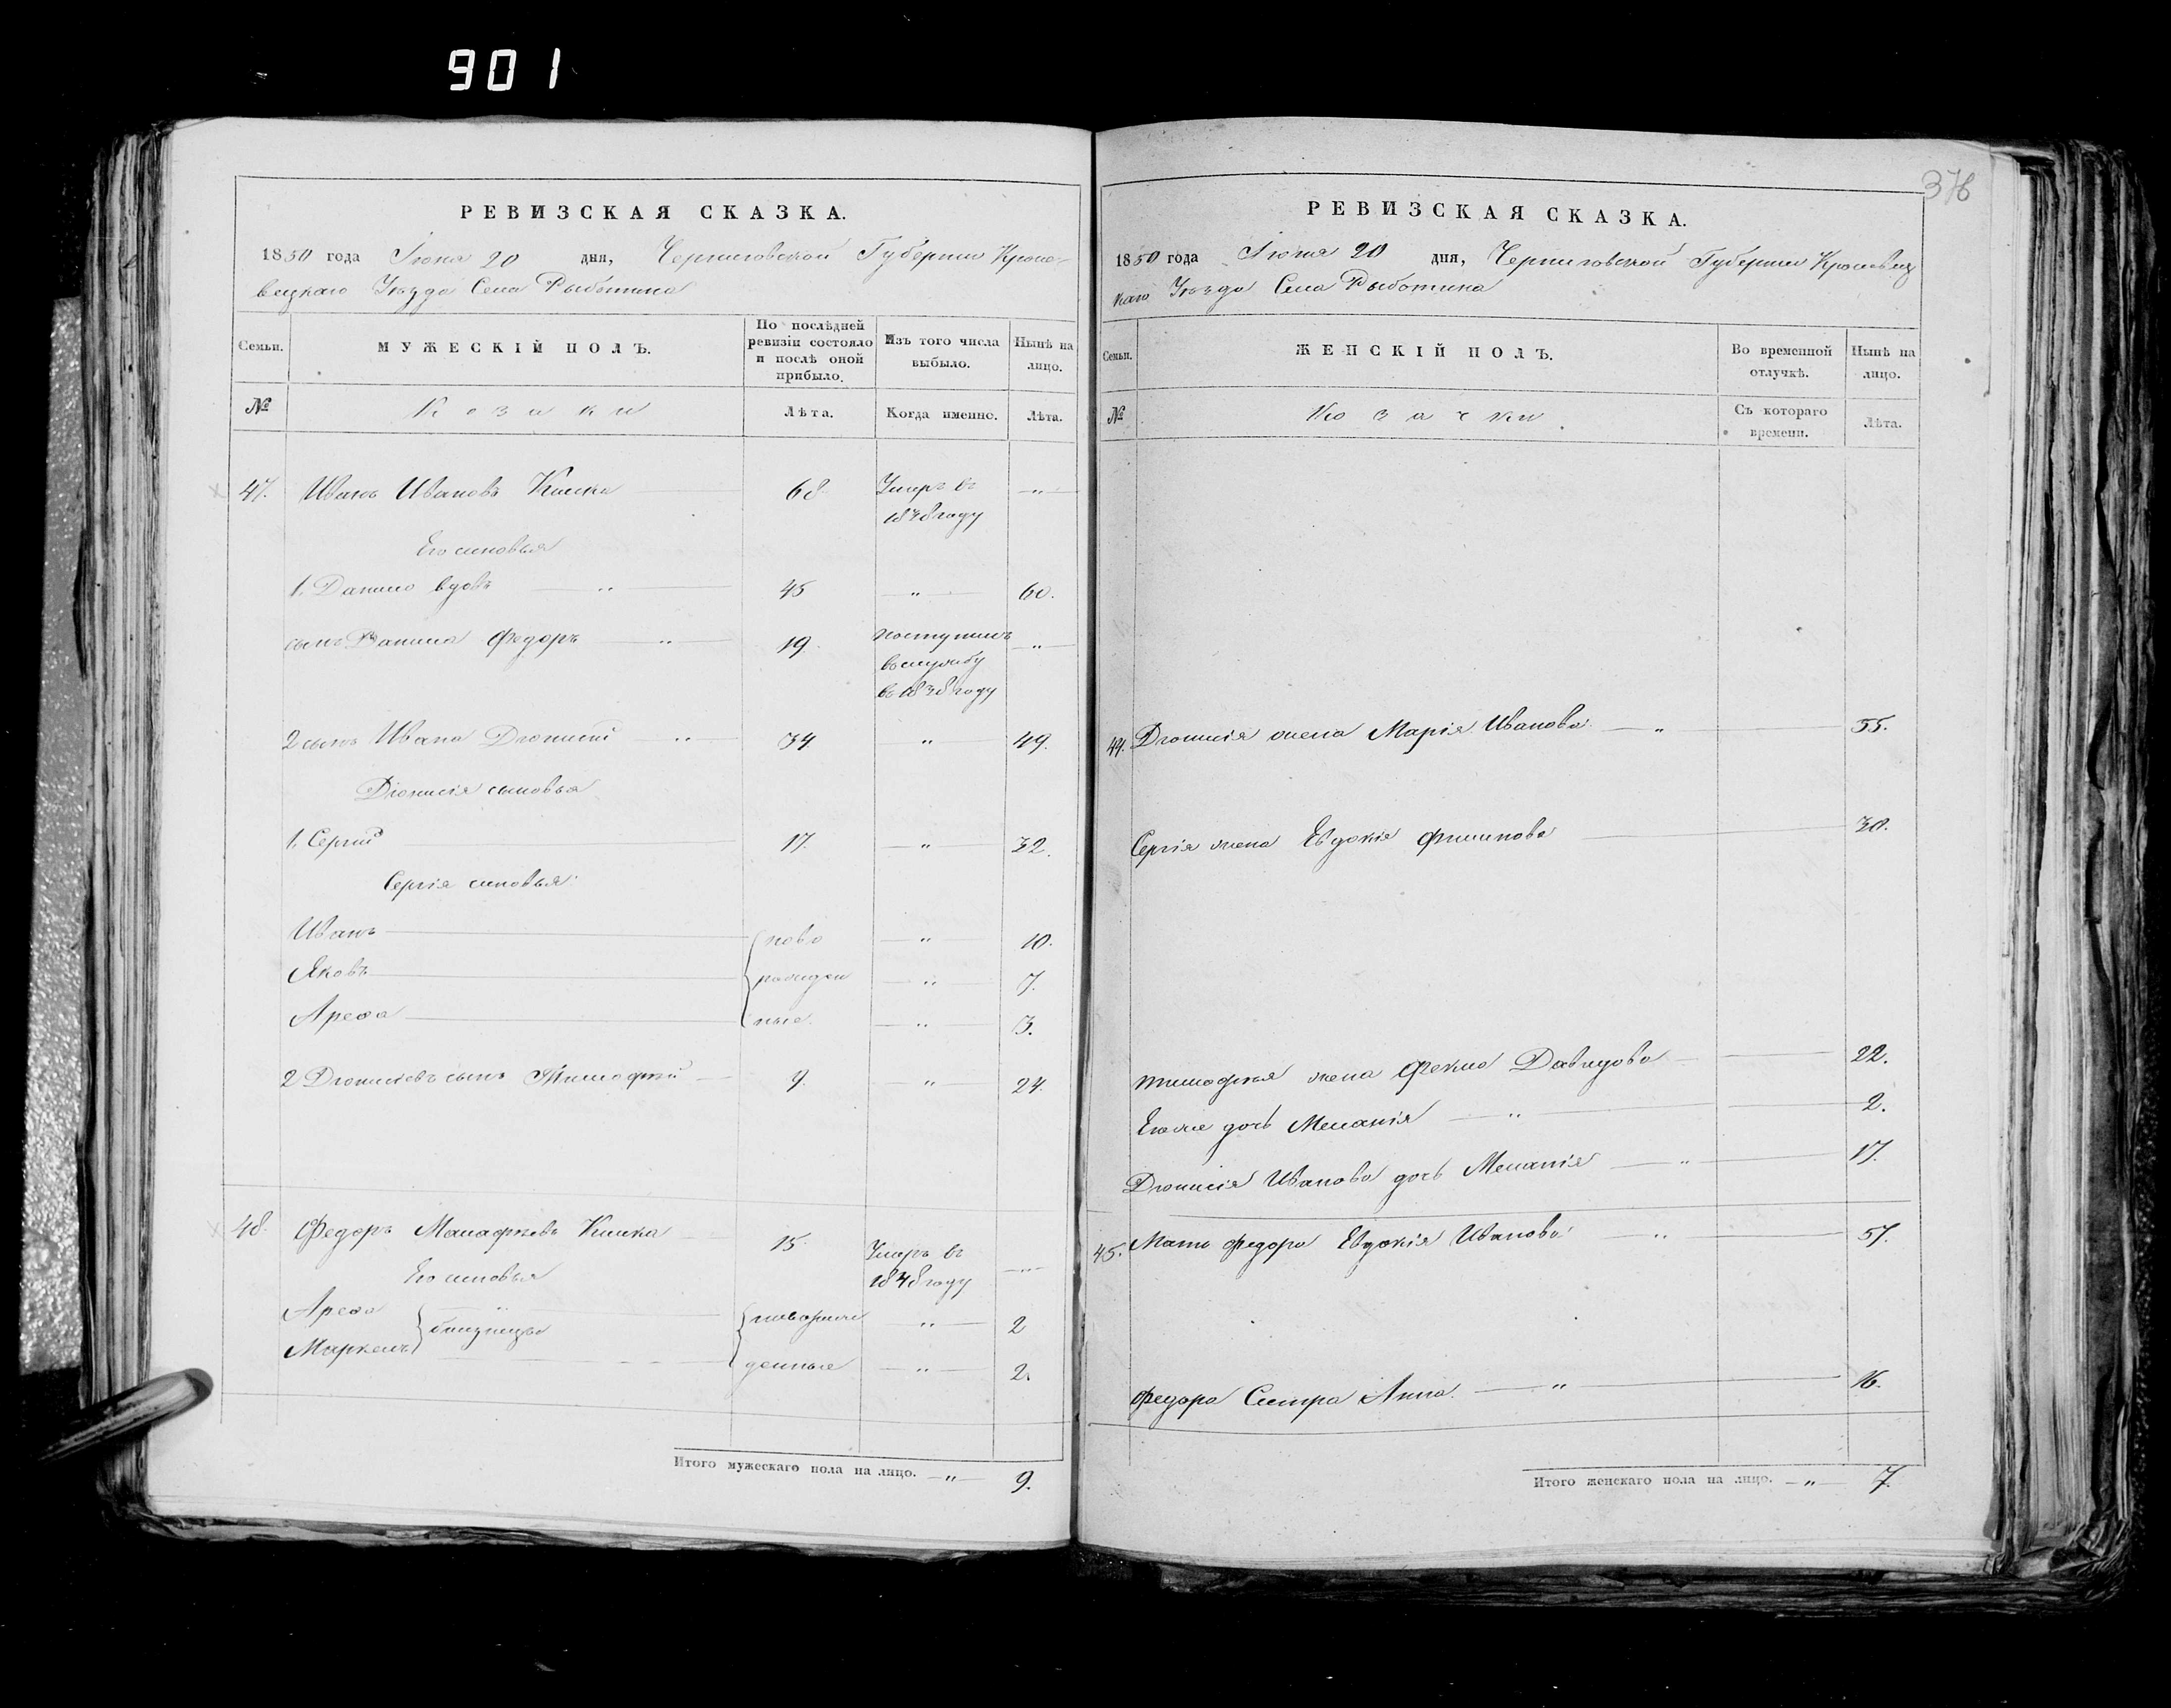 901
376
РЕВИЗСКАЯ СКАЗКА.
1850 года Іюня 20 дня, Черниговской Губерніи Кроле-
вецкаго Уѣзда Села Рыботина
Семьи. МУЖЕСКІЙ ПОЛЪ. По послѣдней ревизіи состояло и послѣ оной прибыло. Изъ того числа выбыло. Нынѣ на лицо.
№ Козаки Лѣта. Когда именно. Лѣта.
47. Иванъ Ивановъ Кишка 68 Умеръ въ — " —
1848 году
Его синовья
1. Данило вдовъ — " — 45 — " — 60.
сынъ Данила Федоръ — " — 19. поступилъ — " —
въ службу
въ 1838 году
2 сынъ Ивана Діонисій — " — 34 — " — 49.
Діонисія сыновья
1. Сергій 17. — " — 32.
Сергія синовья
Иванъ ново — " — 10.
Яковъ рожден — " — 7.
Арефа ные. — " — 3.
2 Діонисіевъ сынъ Тимофей 9. — " — 24.
48. Федоръ Малафѣевъ Кишка 15. Умеръ въ — " —
1848 году
Его синовья
Арефа близнецы новорож — " — 2
Маркелъ денные — " — 2.
Итого мужескаго пола на лицо. — " — 9.
РЕВИЗСКАЯ СКАЗКА.
1850 года Іюня 20 дня, Черниговской Губерніи Кролевец
каго Уѣзда Села Рыботина
Семьи. ЖЕНСКІЙ ПОЛЪ. Во временной отлучкѣ. Нынѣ на лицо.
№ Козачки Съ котораго времени. Лѣта.
44. Діонисія жена Марія Иванова — " — 55.
Сергія жена Евдокія Филипова 30.
Тимофея жена Фекла Давидова 22.
Егоже дочь Меланія — " — 2.
Діонисія Иванова дочь Меланія — " — 17.
45. Мать Федора Евдокія Иванова — " — 57.
Федора Сестра Анна. — " — 16.
Итого женскаго пола на лицо. — " — 7.